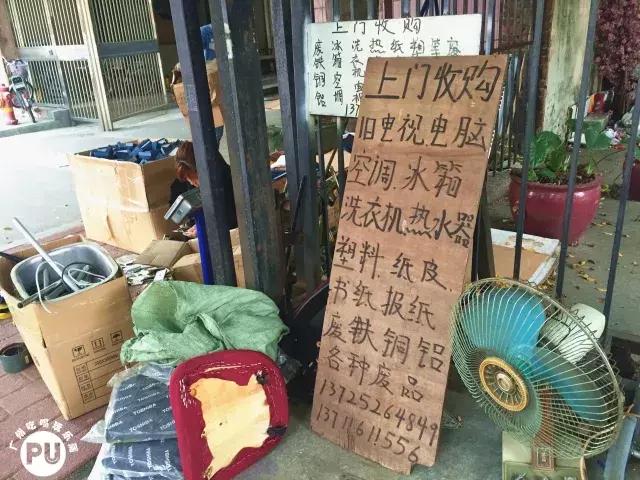 上门收购
废冰洗热纸塑苹废
铁箱衣
铜空机
铝调
上门收购
旧电视电脑
空调冰箱
洗衣机热水器
塑料纸皮
书纸报纸
废鉄铜铝
各种废品
13725264849
13711611556
TOSHIBA
PU